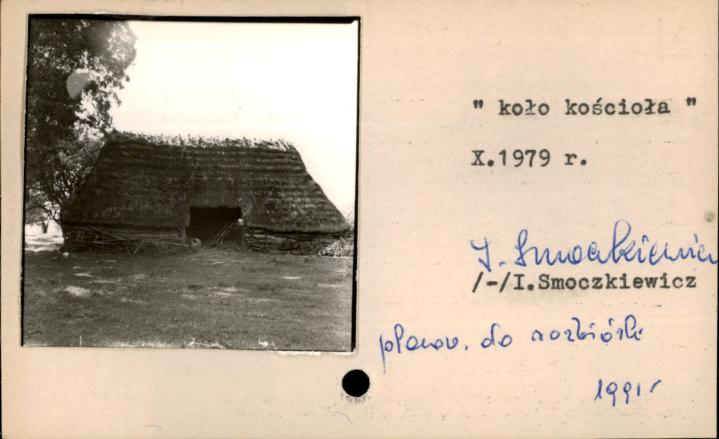 " koło kościoła "
X.1979 r.
I. Smoczkiewicz
/-/I.Smoczkiewicz
planow. do rozbiórki
1991r